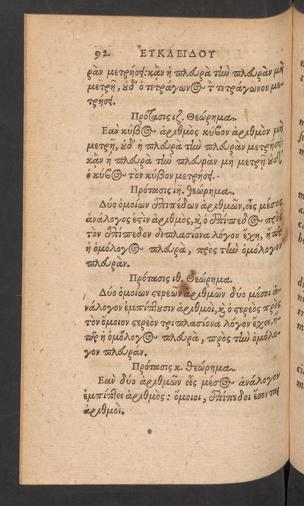 92. ΕΥΚΛΕΙΔΟΥ
ρὰν μετρήσει: κἂν ἡ πλευρὰ τὴν πλευρὰν μὴ
μετρῇ, οὐδ' ὁ τετράγωνος τὸν τετράγωνον με-
τρήσει.
Πρότασις ιζ. Θεώρημα.
Ἐὰν κύβος ἀριθμὸς κύβον ἀριθμὸν μὴ
μετρῇ, οὐδ' ἡ πλευρὰ τὴν πλευρὰν μετρήσει:
κἂν ἡ πλευρὰ τὴν πλευρὰν μὴ μετρῇ οὐδ'
ὁ κύβος τὸν κύβον μετρήσει.
Πρότασις ιη. Θεώρημα.
Δύο ὁμοίων ἐπιπέδων ἀριθμῶν, εἷς μέσος
ἀνάλογός ἐστιν ἀριθμός, καὶ ὁ ἐπίπεδος πρὸς
τὸν ἐπίπεδον διπλασίονα λόγον ἔχει, ἤπερ
ἡ ὁμόλογος πλευρὰ, πρὸς τὴν ὁμόλογον
πλευράν.
Πρότασις ιθ. Θεώρημα.
Δύο ὁμοίων στερεῶν ἀριθμῶν δύο μέσοι ἀ-
νάλογον ἐμπίπτουσιν ἀριθμοί, καὶ ὁ στερεὸς πρὸς
τὸν ὅμοιον στερεὸν τριπλασίονα λόγον ἔχει, ἤ-
περ ἡ ὁμόλογος πλευρὰ, πρὸς τὴν ὁμόλο-
γον πλευράν.
Πρότασις κ. Θεώρημα.
Ἐὰν δύο ἀριθμῶν εἷς μέσος ἀνάλογον
ἐμπίπτει ἀριθμός: ὅμοιοι, ἐπίπεδοι ἔσονται
ἀριθμοί.